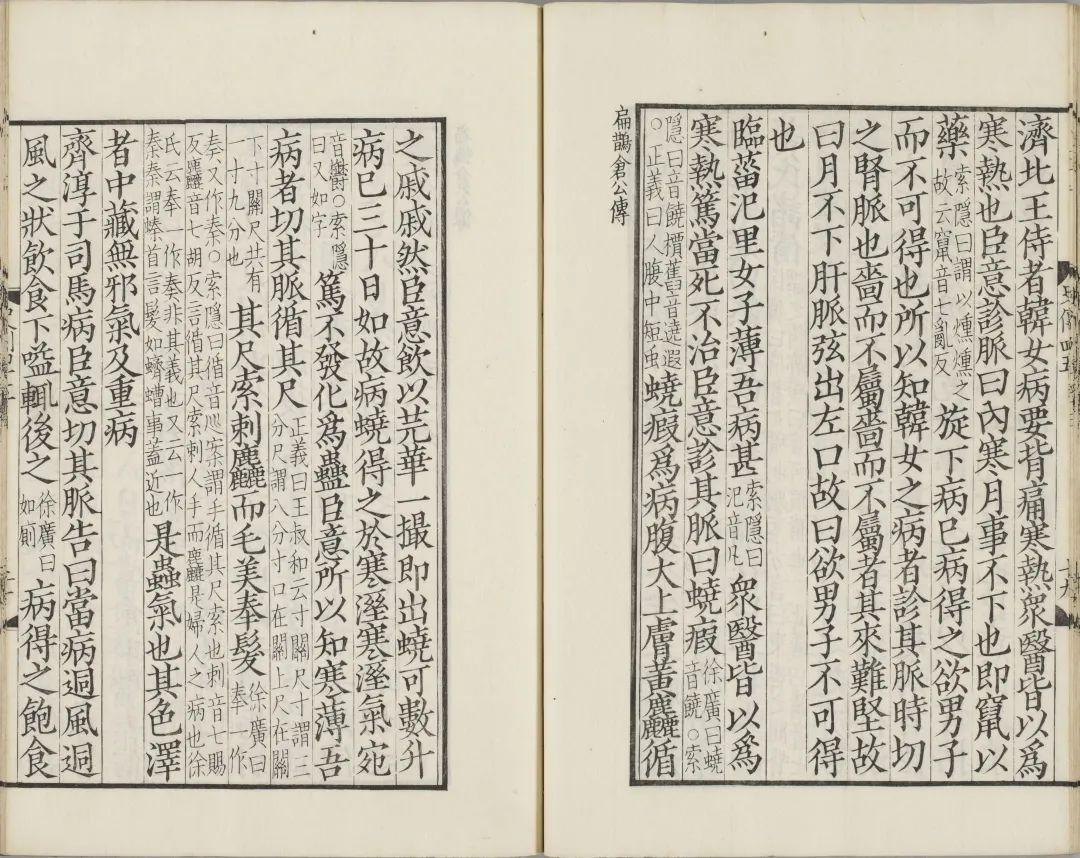 濟北王侍者韓女病要背痛寒熱衆醫皆以爲
寒熱也臣意診脈曰内寒月事不下也即竄以
藥索隱曰謂以燻燻之故云竄音七亂反旋下病已病得之欲男子
而不可得也所以知韓女之病者診其脈時切
之腎脈也嗇而不屬嗇而不屬者其來難堅故
曰月不下肝脈弦出左口故曰欲男子不可得
也
臨菑汜里女子薄吾病甚索隱曰汜音凡衆醫皆以爲
寒熱篤當死不治臣意診其脈曰蟯瘕徐廣曰蟯音饒○索
隱曰音饒檟舊音遶遐○正義曰人腹中短虫蟯瘕爲病腹大上膚黃麤循
扁鵲倉公傳
之戚戚然臣意飲以芫華一撮即出蟯可數升
病已三十日如故病蟯得之於寒溼寒溼氣宛
音鬱○索隱曰又如字篤不發化爲蟲臣意所以知寒薄吾
病者切其脈循其尺正義曰王叔和云寸關尺寸謂三分尺謂八分寸口在關上尺在關
下寸關尺共有一十九分也其尺索刺麤而毛美奉髮徐廣曰奉一作
奏又作秦○索隱曰循音巡案謂手循其尺索也刺音七賜反麤音七胡反言循其尺索刺人手而麤是婦人之病也徐
氏云奉一作奏非其義也又云一作秦秦謂螓首言髮如蠐螬事蓋近也是蟲氣也其色澤
者中藏無邪氣及重病
齊淳于司馬病臣意切其脈告曰當病迵風迵
風之狀飲食下嗌輒後之徐廣曰如廁病得之飽食